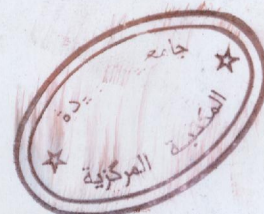 جامعة
المكتبة المركزية